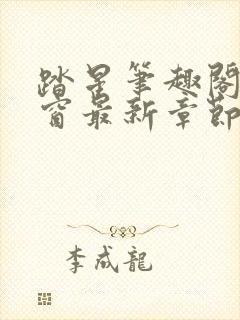 踏星笔趣阁
窗最新章节
李成龍